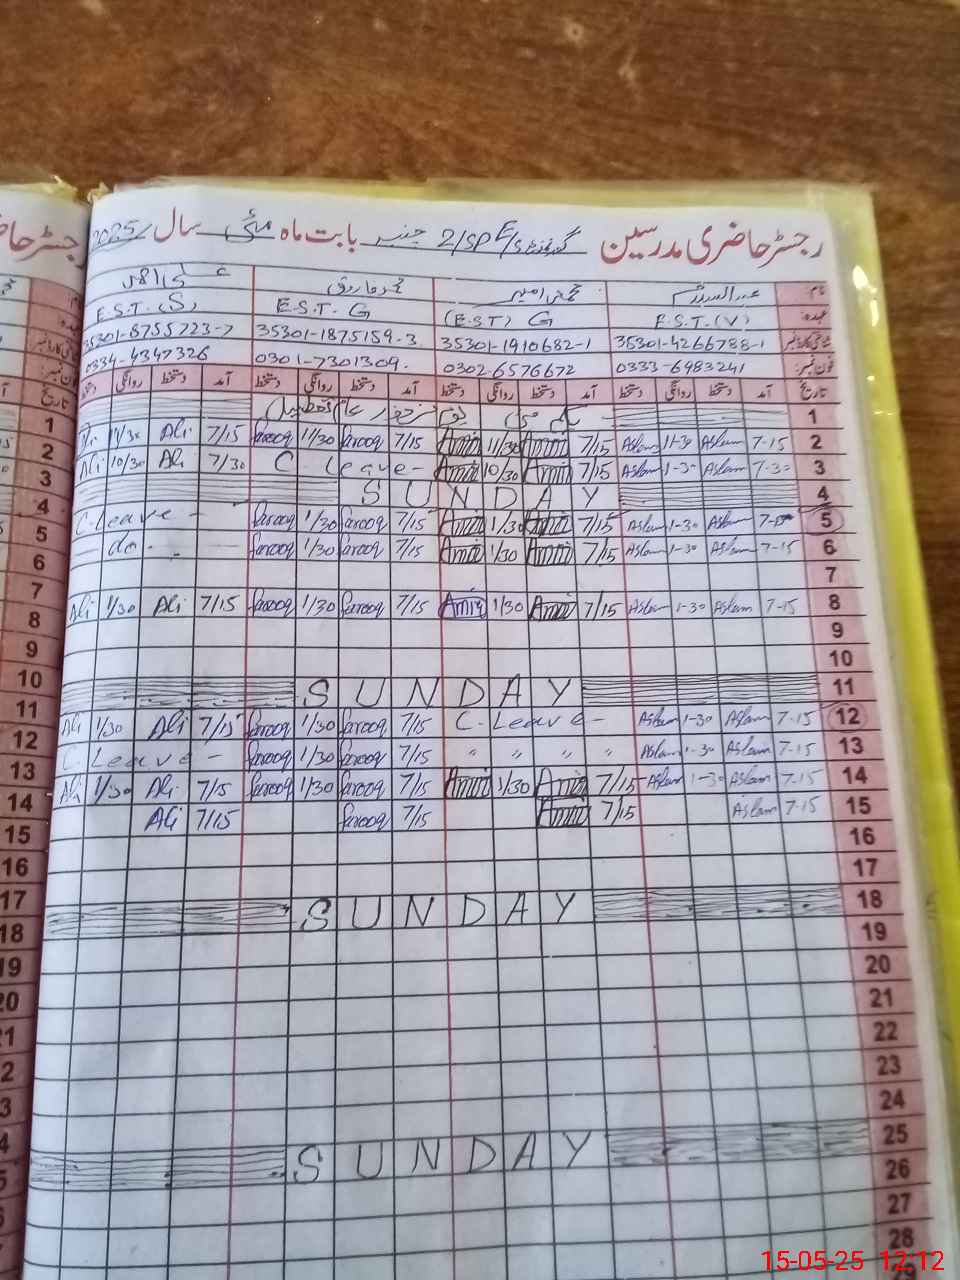 رجسٹر حاضری مدرسین 2/SP بابت ماہ مئی سال 2025
نام:
محمد فاروق
عہدہ:
E.S.T.(V)
(E.S.T) G
E.S.T. G
E.S.T. (S)
شناختی کارڈ نمبر:
35301-4266788-1
35301-1910682-1
35301-1875159-3
35301-8755723-7
فون نمبر:
0333-6983241
0302-6576672
0301-7301309.
0334-4347326
تاریخ آمد دستخط روانگی دستخط آمد دستخط روانگی دستخط آمد دستخط روانگی دستخط آمد دستخط روانگی دستخط
1 یکم مئی یوم مزدور عام تعطیل
2 7-15 Aslam 1-30 Aslam 7/15 Amir 11/30 Amir 7/15 farooq 11/30 farooq 7/15 Ali 11/30
3 7-30 Aslam 1-30 Aslam 7/15 Amir 10/30 Amir C-Leave- 7/30 Ali 10/30 Ali
4 SUNDAY
5 7-15 Aslam 1-30 Aslam 7/15 Amir 1/30 Amir 7/15 farooq 1/30 farooq C-Leave -
6 7-15 Aslam 1-30 Aslam 7/15 Amir 1/30 Amir 7/15 farooq 1/30 farooq - do -
7
8 7-15 Aslam 1-30 Aslam 7/15 Amir 1/30 Amir 7/15 farooq 1/30 farooq 7/15 Ali 1/30 Ali
9
10
11 SUNDAY
12 7-15 Aslam 1-30 Aslam C-Leave - 7/15 farooq 1/30 farooq 7/15 Ali 1/30 Ali
13 7-15 Aslam 1-30 Aslam " " " " 7/15 farooq 1/30 farooq C-Leave -
14 7-15 Aslam 1-30 Aslam 7/15 Amir 1/30 Amir 7/15 farooq 1/30 farooq 7/15 Ali 1/30 Ali
15 7-15 Aslam 7/15 Amir 7/15 farooq 7/15 Ali
16
17
18 SUNDAY
19
20
21
22
23
24
25 SUNDAY
26
27
28
15-05-25 12:12